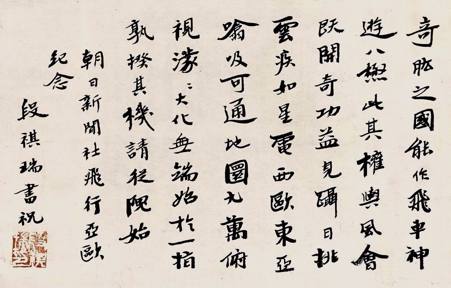 奇肱之國能作飛車神
遊八極此其權輿風會
既開奇功益見躡日挑
雲疾如星電西歐東亞
噏吸可通地圜九萬俯
視濛〻大化無端始於一指
孰揆其機請從隗始
朝日新聞社飛行亞歐
紀念
段祺瑞書祝